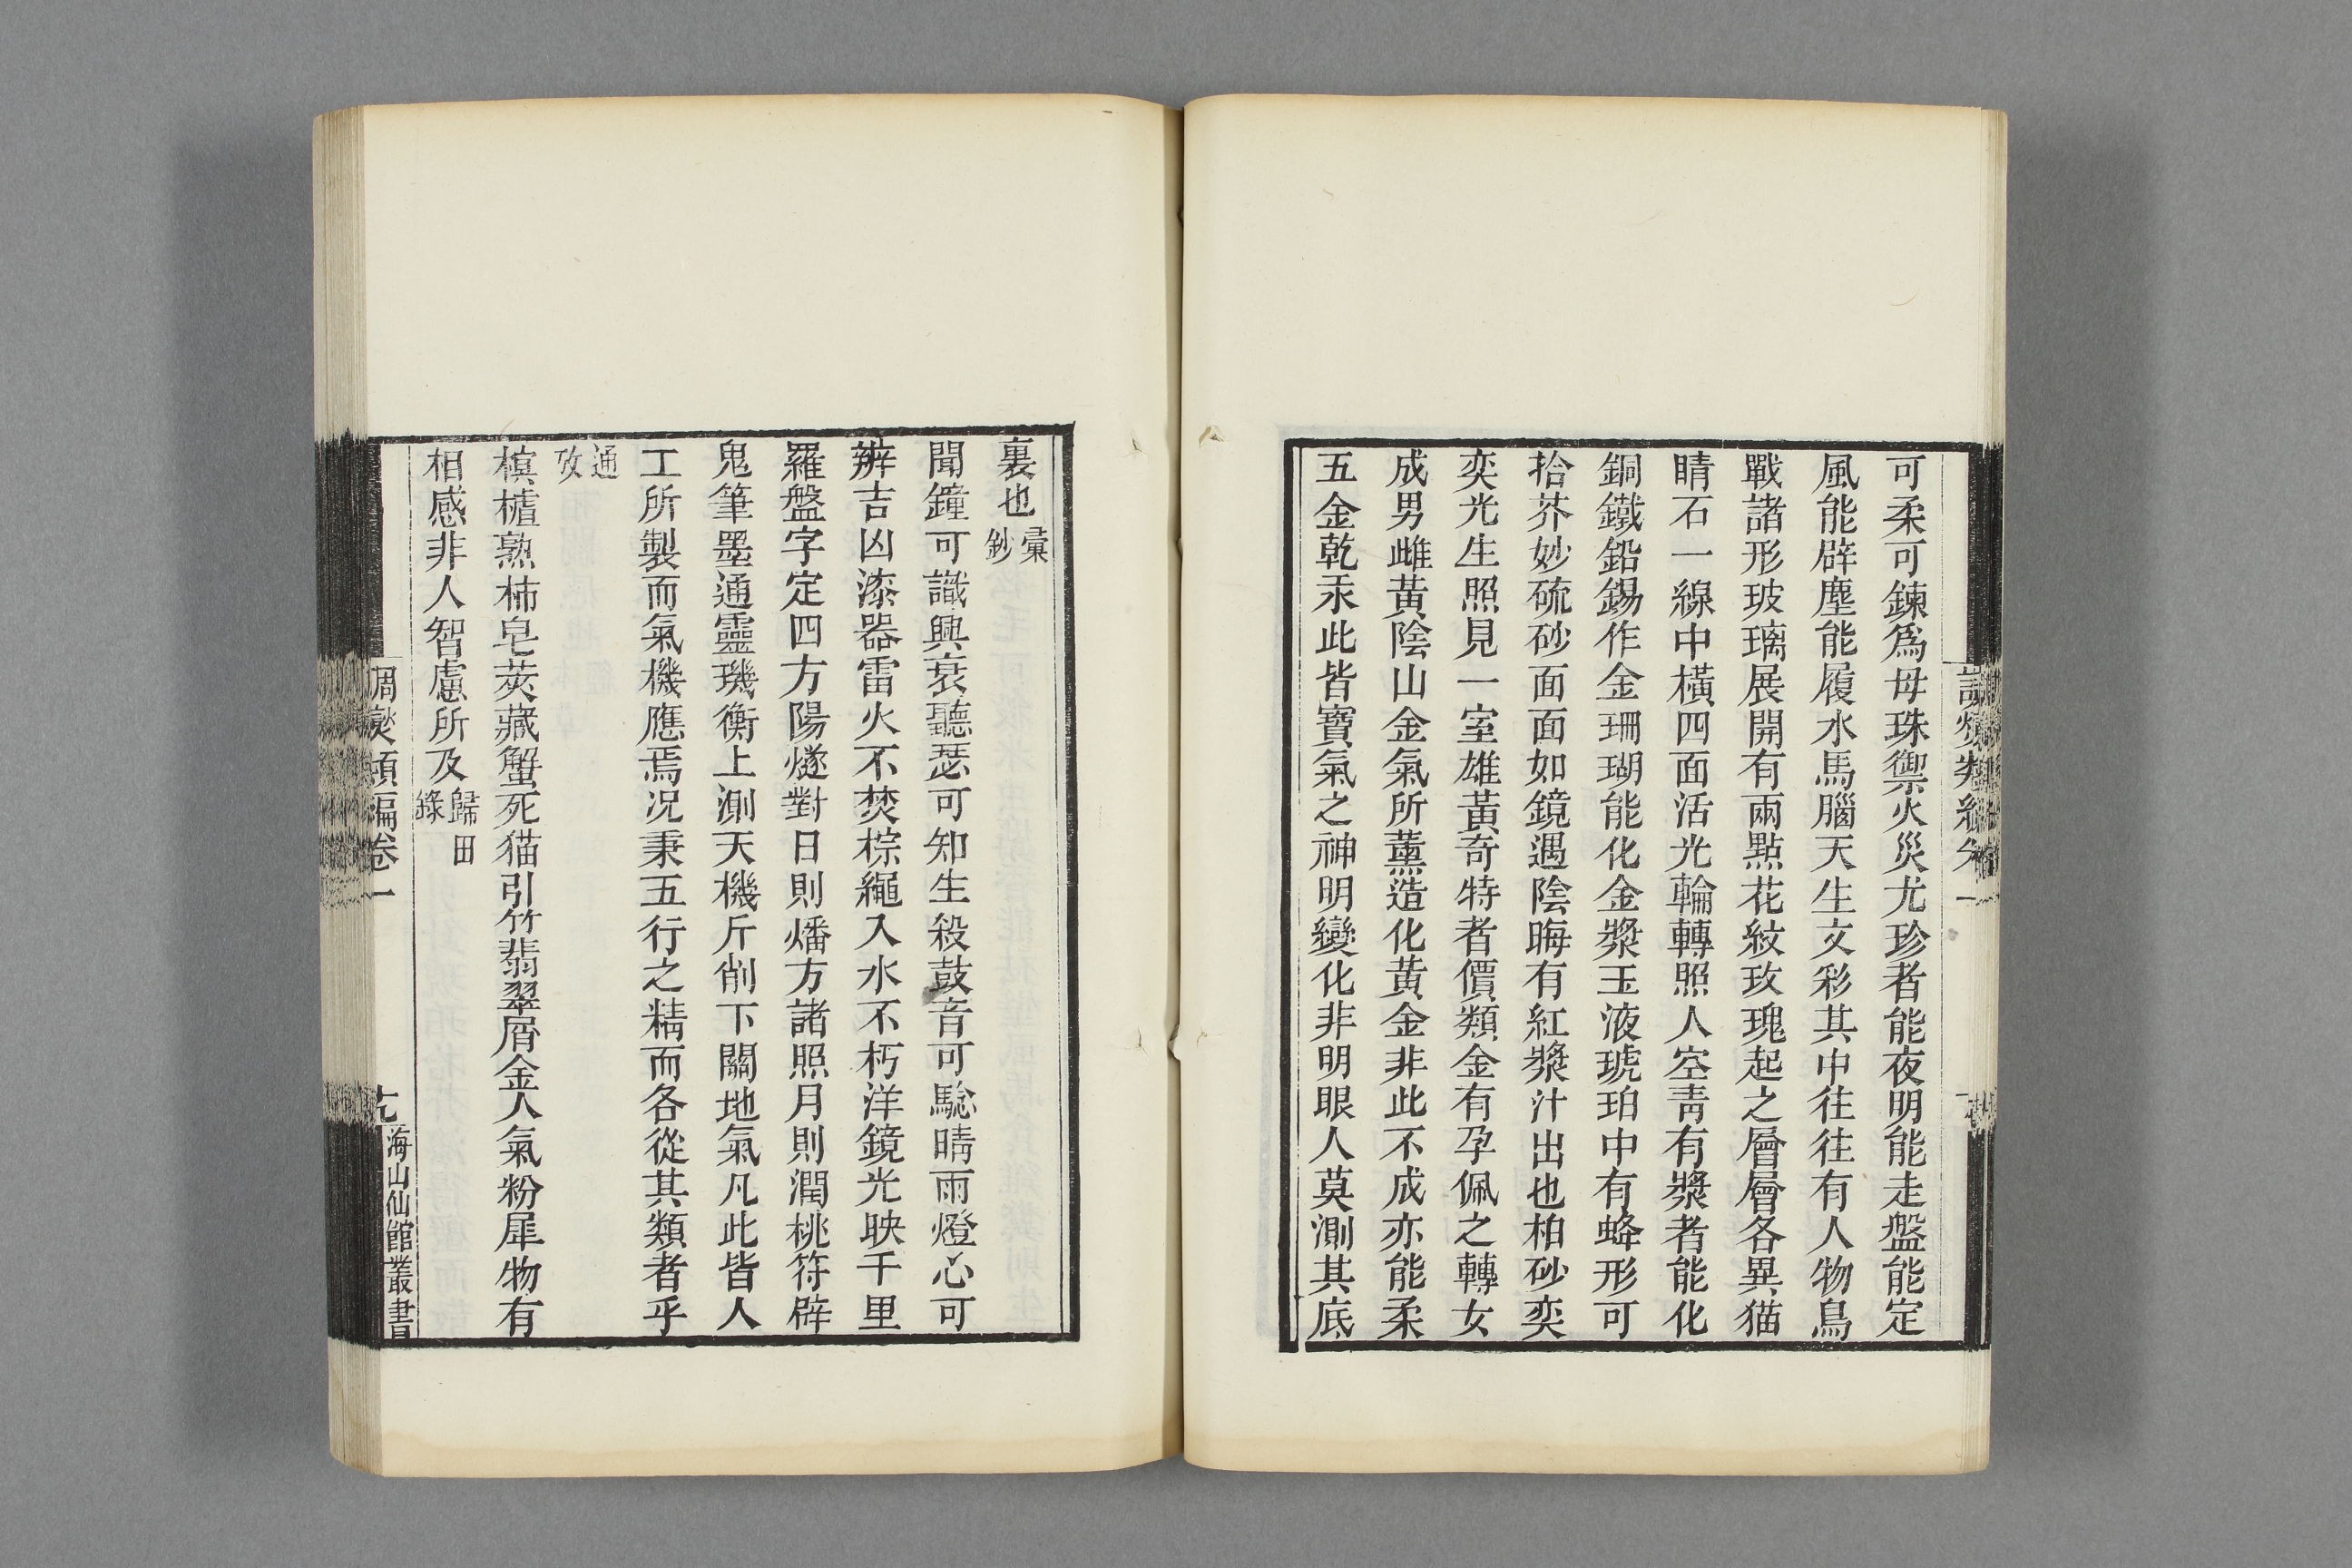 可柔可鍊爲母珠禦火災尤珍者能夜明能走盤能定
風能辟塵能履水馬腦天生文彩其中往往有人物鳥
戰諸形玻璃展開有兩點花紋玫瑰起之層層各異猫
睛石一線中橫四面活光輪轉照人空靑有漿者能化
銅鐵鉛錫作金珊瑚能化金漿玉液琥珀中有蜂形可
拾芥妙硫砂面面如鏡遇陰晦有紅漿汁出也柏砂奕
奕光生照見一室雄黃奇特者價類金有孕佩之轉女
成男雌黃陰山金氣所薰造化黃金非此不成亦能柔
五金乾汞此皆寶氣之神明變化非明眼人莫測其底
裏也彙鈔
聞鐘可識興衰聽瑟可知生殺鼓音可驗晴雨燈心可
辨吉凶漆器雷火不焚棕繩入水不朽洋鏡光映千里
羅盤字定四方陽燧對日則燔方諸照月則潤桃符辟
鬼筆墨通靈璣衡上測天機斤削下關地氣凡此皆人
工所製而氣機應焉况秉五行之精而各從其類者乎
通攷
榠樝熟柿皂莢藏蟹死猫引竹翡翠屑金人氣粉犀物有
相感非人智慮所及歸田錄
調燮類編卷一
海山仙館叢書